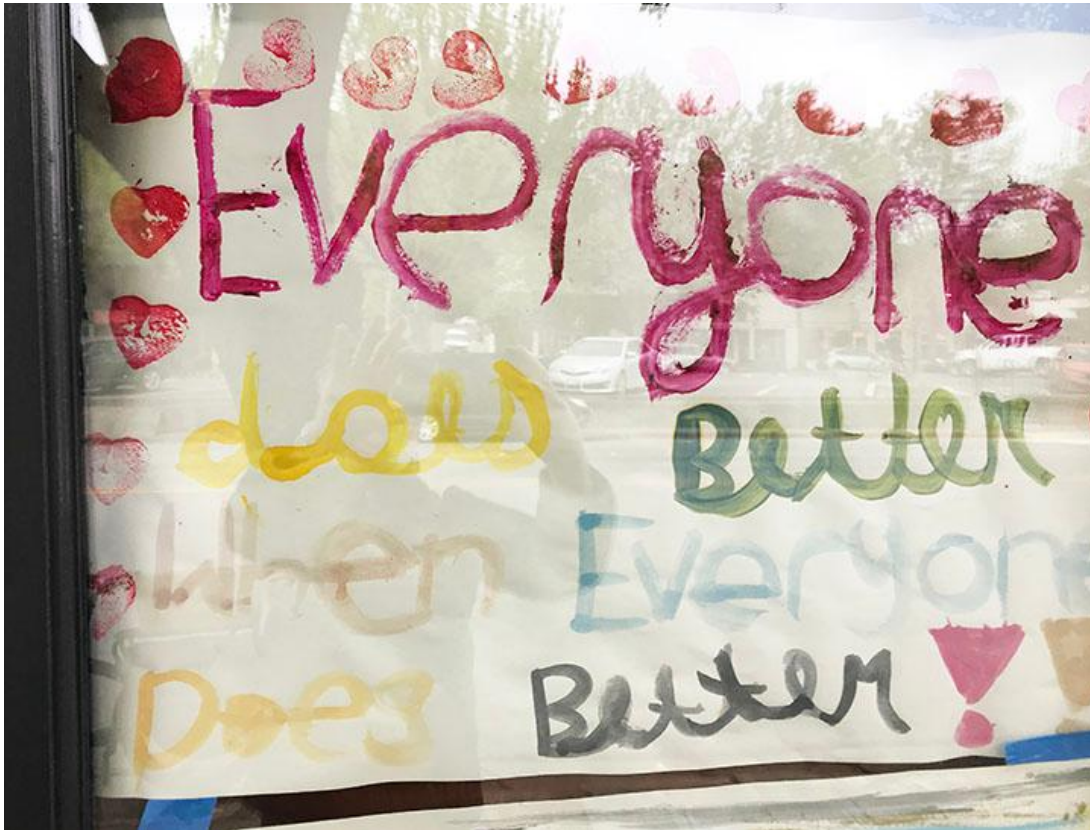 Everyone
does Better
When Everyone
Does Better!